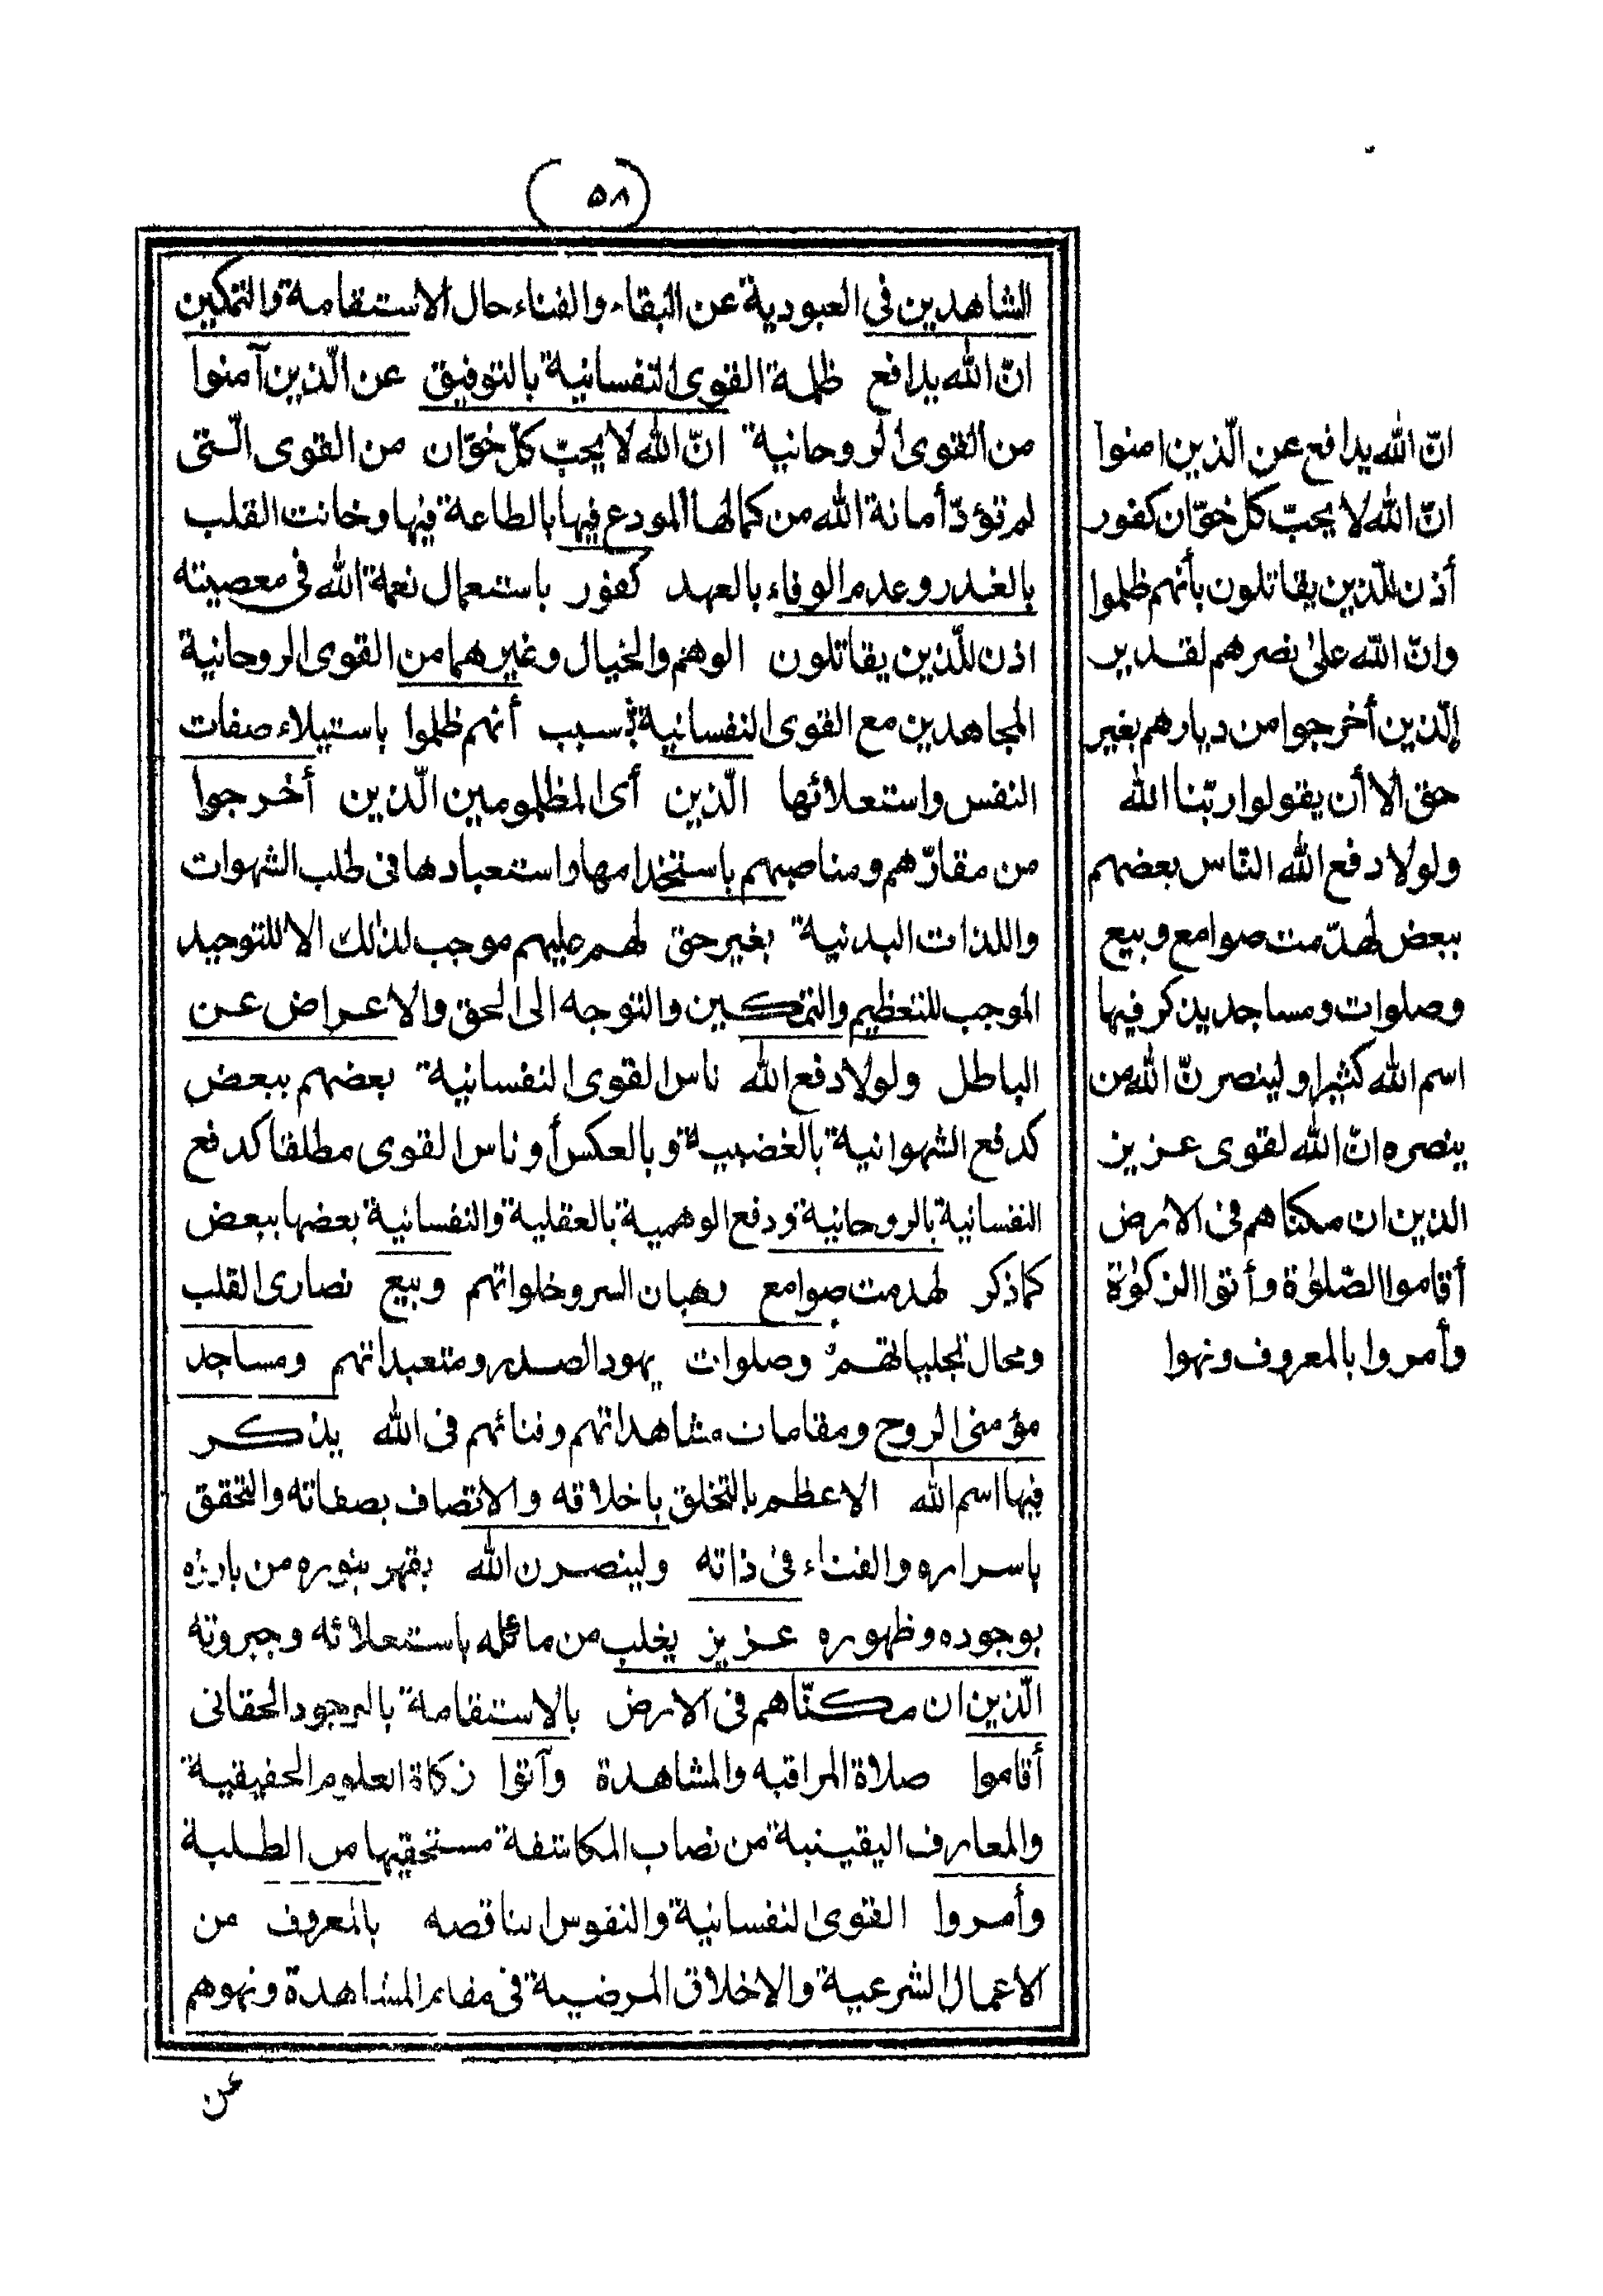 (٥٨)
الشاهدين فى العبودية عن البقاء والفناء حال الاستقامة والتمكين
انّ الله يدافع ظلمة القوى النفسانية بالتوفيق عن الّذين آمنوا
من القوى الروحانية انّ الله لا يحبّ كلّ خوّان من القوى الّتى
لم تؤدّ أمانة الله من كمالها المودع فيها بالطاعة فيها وخانت القلب
بالغدر وعدم الوفاء بالعهد كفور باستعمال نعمة الله فى معصيته
اذن للّذين يقاتلون الوهم والخيال وغيرهما من القوى الروحانية
المجاهدين مع القوى النفسانية بسبب أنهم ظلموا باستيلاء صفات
النفس واستعلائها الّذين أى المظلومين الّذين أخرجوا
من مقارّهم ومناصبهم باستخدامها واستعبادها فى طلب الشهوات
واللذات البدنية بغير حق لهم عليهم موجب لذلك الا للتوحيد
الموجب للتعظيم والتمكين والتوجه الى الحق والاعراض عن
الباطل ولولا دفع الله ناس القوى النفسانية بعضهم ببعض
كدفع الشهوانية بالغضبية وبالعكس أو ناس القوى مطلقا كدفع
النفسانية بالروحانية ودفع الوهمية بالعقلية والنفسانية بعضها ببعض
كما ذكر لهدمت صوامع رهبان السر وخلواتهم وبيع نصارى القلب
ومحال تجلياتهم وصلوات يهود الصدر ومتعبداتهم ومساجد
مؤمنى الروح ومقامات مشاهداتهم وفنائهم فى الله يذكر
فيها اسم الله الاعظم بالتخلق باخلاقه والاتصاف بصفاته والتحقق
باسراره والفناء فى ذاته ولينصرن الله بقهر بنوره من بارزه
بوجوده وظهوره عزيز يغلب من ماثله باستعلائه وجبروته
الّذين ان مكنّاهم فى الارض بالاستقامة بالوجود الحقانى
أقاموا صلاة المراقبه والمشاهدة وآتوا زكاة العلوم الحقيقية
والمعارف اليقينية من نصاب المكاشفة مستحقيها من الطلبة
وأمروا القوى النفسانية والنفوس الناقصه بالمعروف من
الاعمال الشرعية والاخلاق المرضية فى مقام المشاهدة ونهوهم
عن
انّ الله يدافع عن الّذين امنوا
انّ الله لا يحبّ كل خوّان كفور
أذن للّذين يقاتلون بأنهم ظلموا
وانّ الله على نصرهم لقدير
الّذين أخرجوا من ديارهم بغير
حق الا أن يقولوا ربّنا الله
ولولا دفع الله النّاس بعضهم
ببعض لهدّمت صوامع وبيع
وصلوات ومساجد يذكر فيها
اسم الله كثيرا ولينصرنّ الله من
ينصره انّ الله لقوى عزيز
الذين ان مكنّاهم فى الارض
أقاموا الصّلوٰة وأتوا الزكوٰة
وأمروا بالمعروف ونهوا